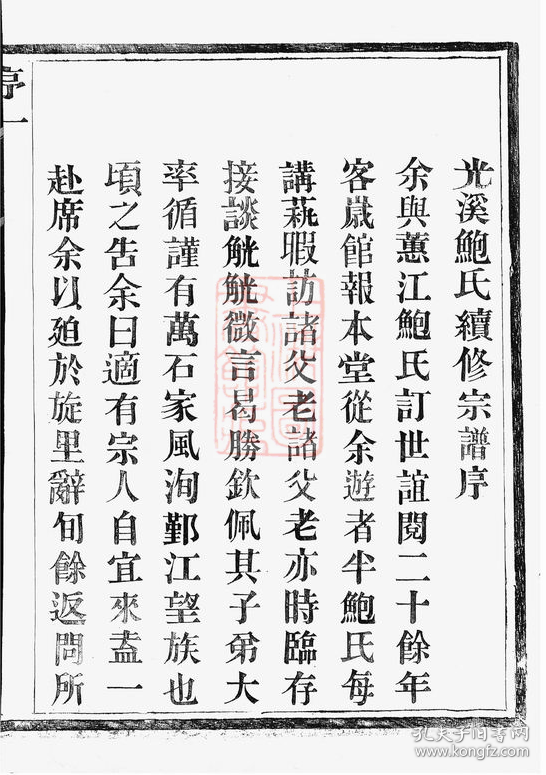 光溪鮑氏續修宗譜序
余與蕙江鮑氏訂世誼閱二十餘年
客歲館報本堂從余遊者半鮑氏每
講蓺暇訪諸父老諸父老亦時臨存
接談觥觥微言曷勝欽佩其子弟大
率循謹有萬石家風洵鄞江望族也
頃之告余曰適有宗人自宜來盍一
赴席余以廹於旋里辭旬餘返問所
序一
孔夫子旧书网
www.kongfz.com